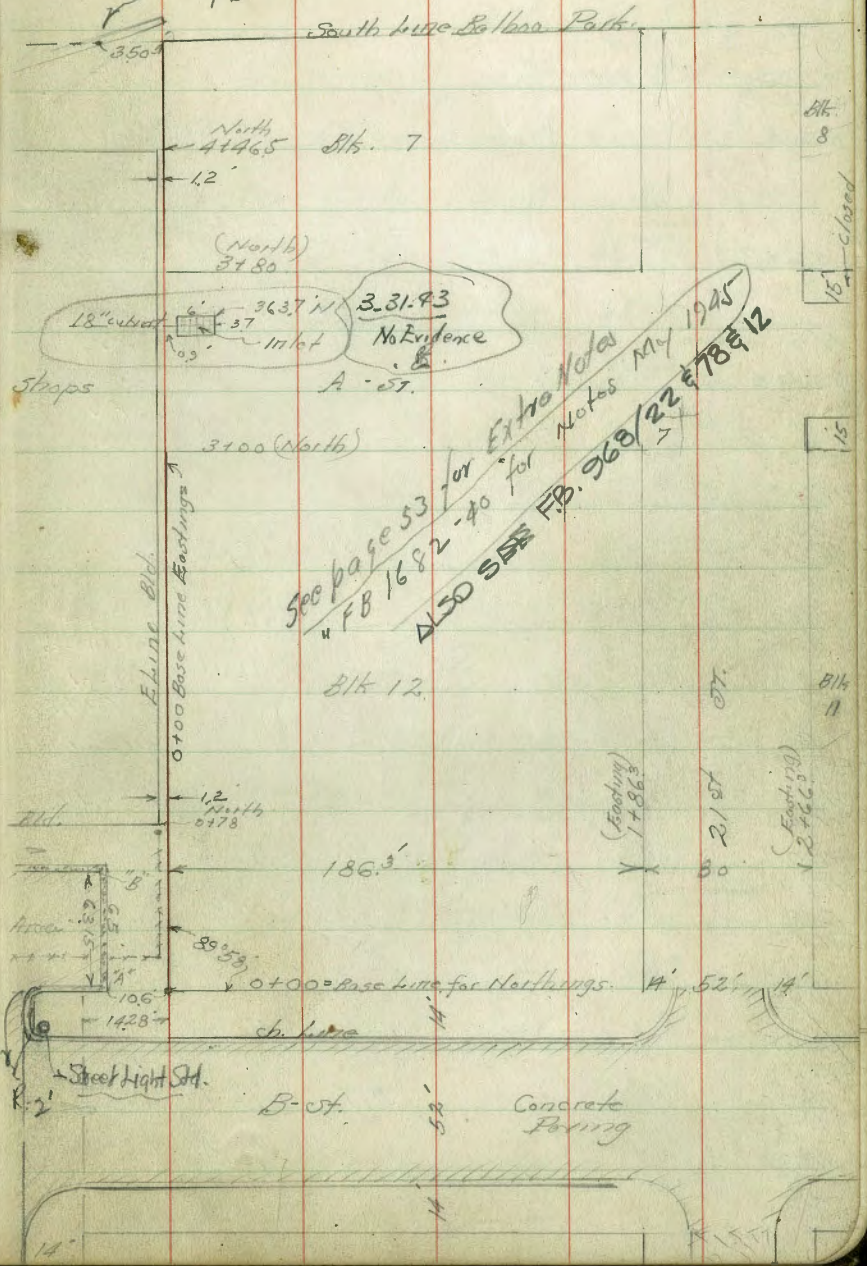 South Line Balboa Park.
350⁵
North
4+46.5
Blk. 7
Blk.
8
1.2'
closed
15'
(North)
3+80
18" culvert
6'
363.7' N
37
Inlet
0.9'
3-31-43
No Evidence
Shops
A - ST.
15
3+00 (North)
See page 53 for Extra Notes
" FB 1682-40 for Notes May 1945
ALSO SEE F.B. 968/22 & 78 & 12
E Line Bld.
0+00 Base Line Eastings
Blk 12
Blk
11
21 ST ST.
(Easting)
1+86.3
(Easting)
2+66.3
1.2
North
0+78
Bld.
186.3'
80
"B"
Area
63.15
6.5
89°58'
"A"
0+00 = Base Line for Northings.
14'
52'
14'
10.6
14.28
14'
ch. Line
Street Light Std.
R-2'
B-st.
52'
Concrete
Paving
14'
14'